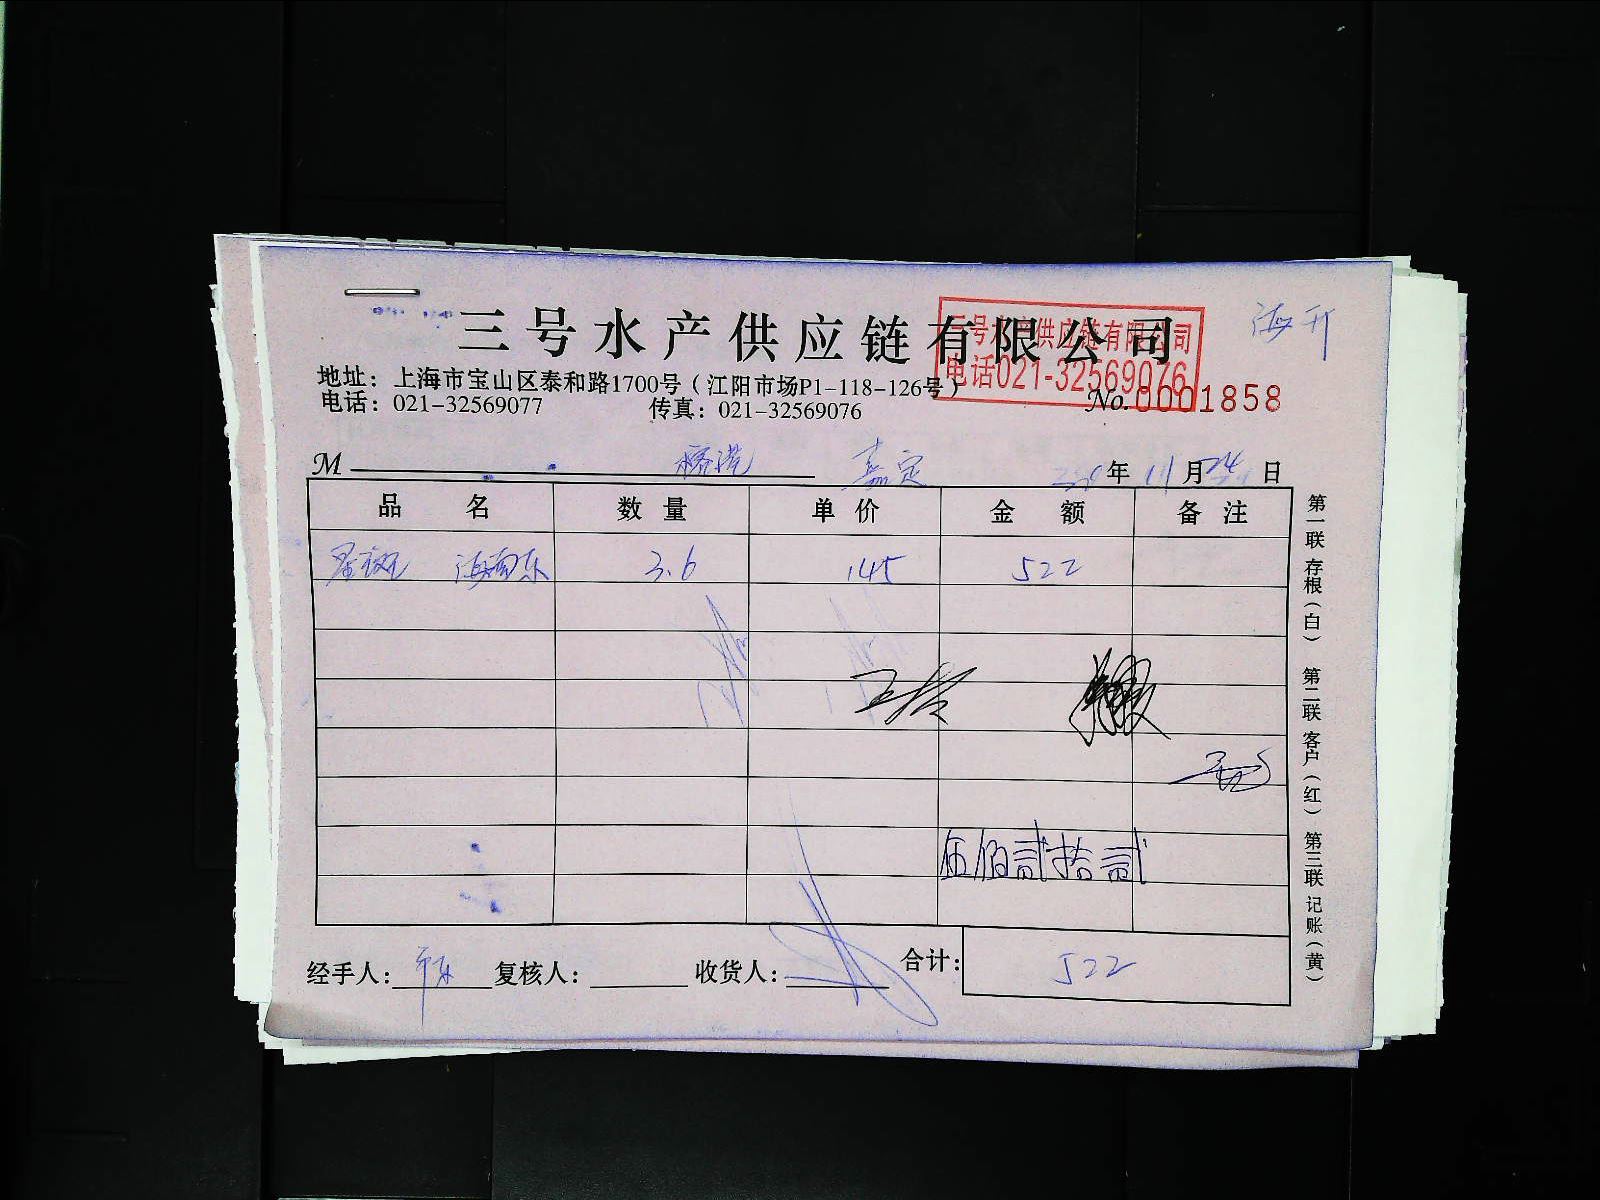 三号水产供应链有限公司
三号水产供应链有限公司
电话021-32569076
海开
地址：上海市宝山区泰和路1700号（江阳市场P1-118-126号）
电话：021-32569077 传真：021-32569076
No.0001858
M 嘉定 年 11月24日
品名 数量 单价 金额 备注
星斑 海南东 3.6 145 522
伍佰贰拾贰
经手人： 复核人： 收货人： 合计： 522
第一联 存根（白） 第二联 客户（红） 第三联 记账（黄）